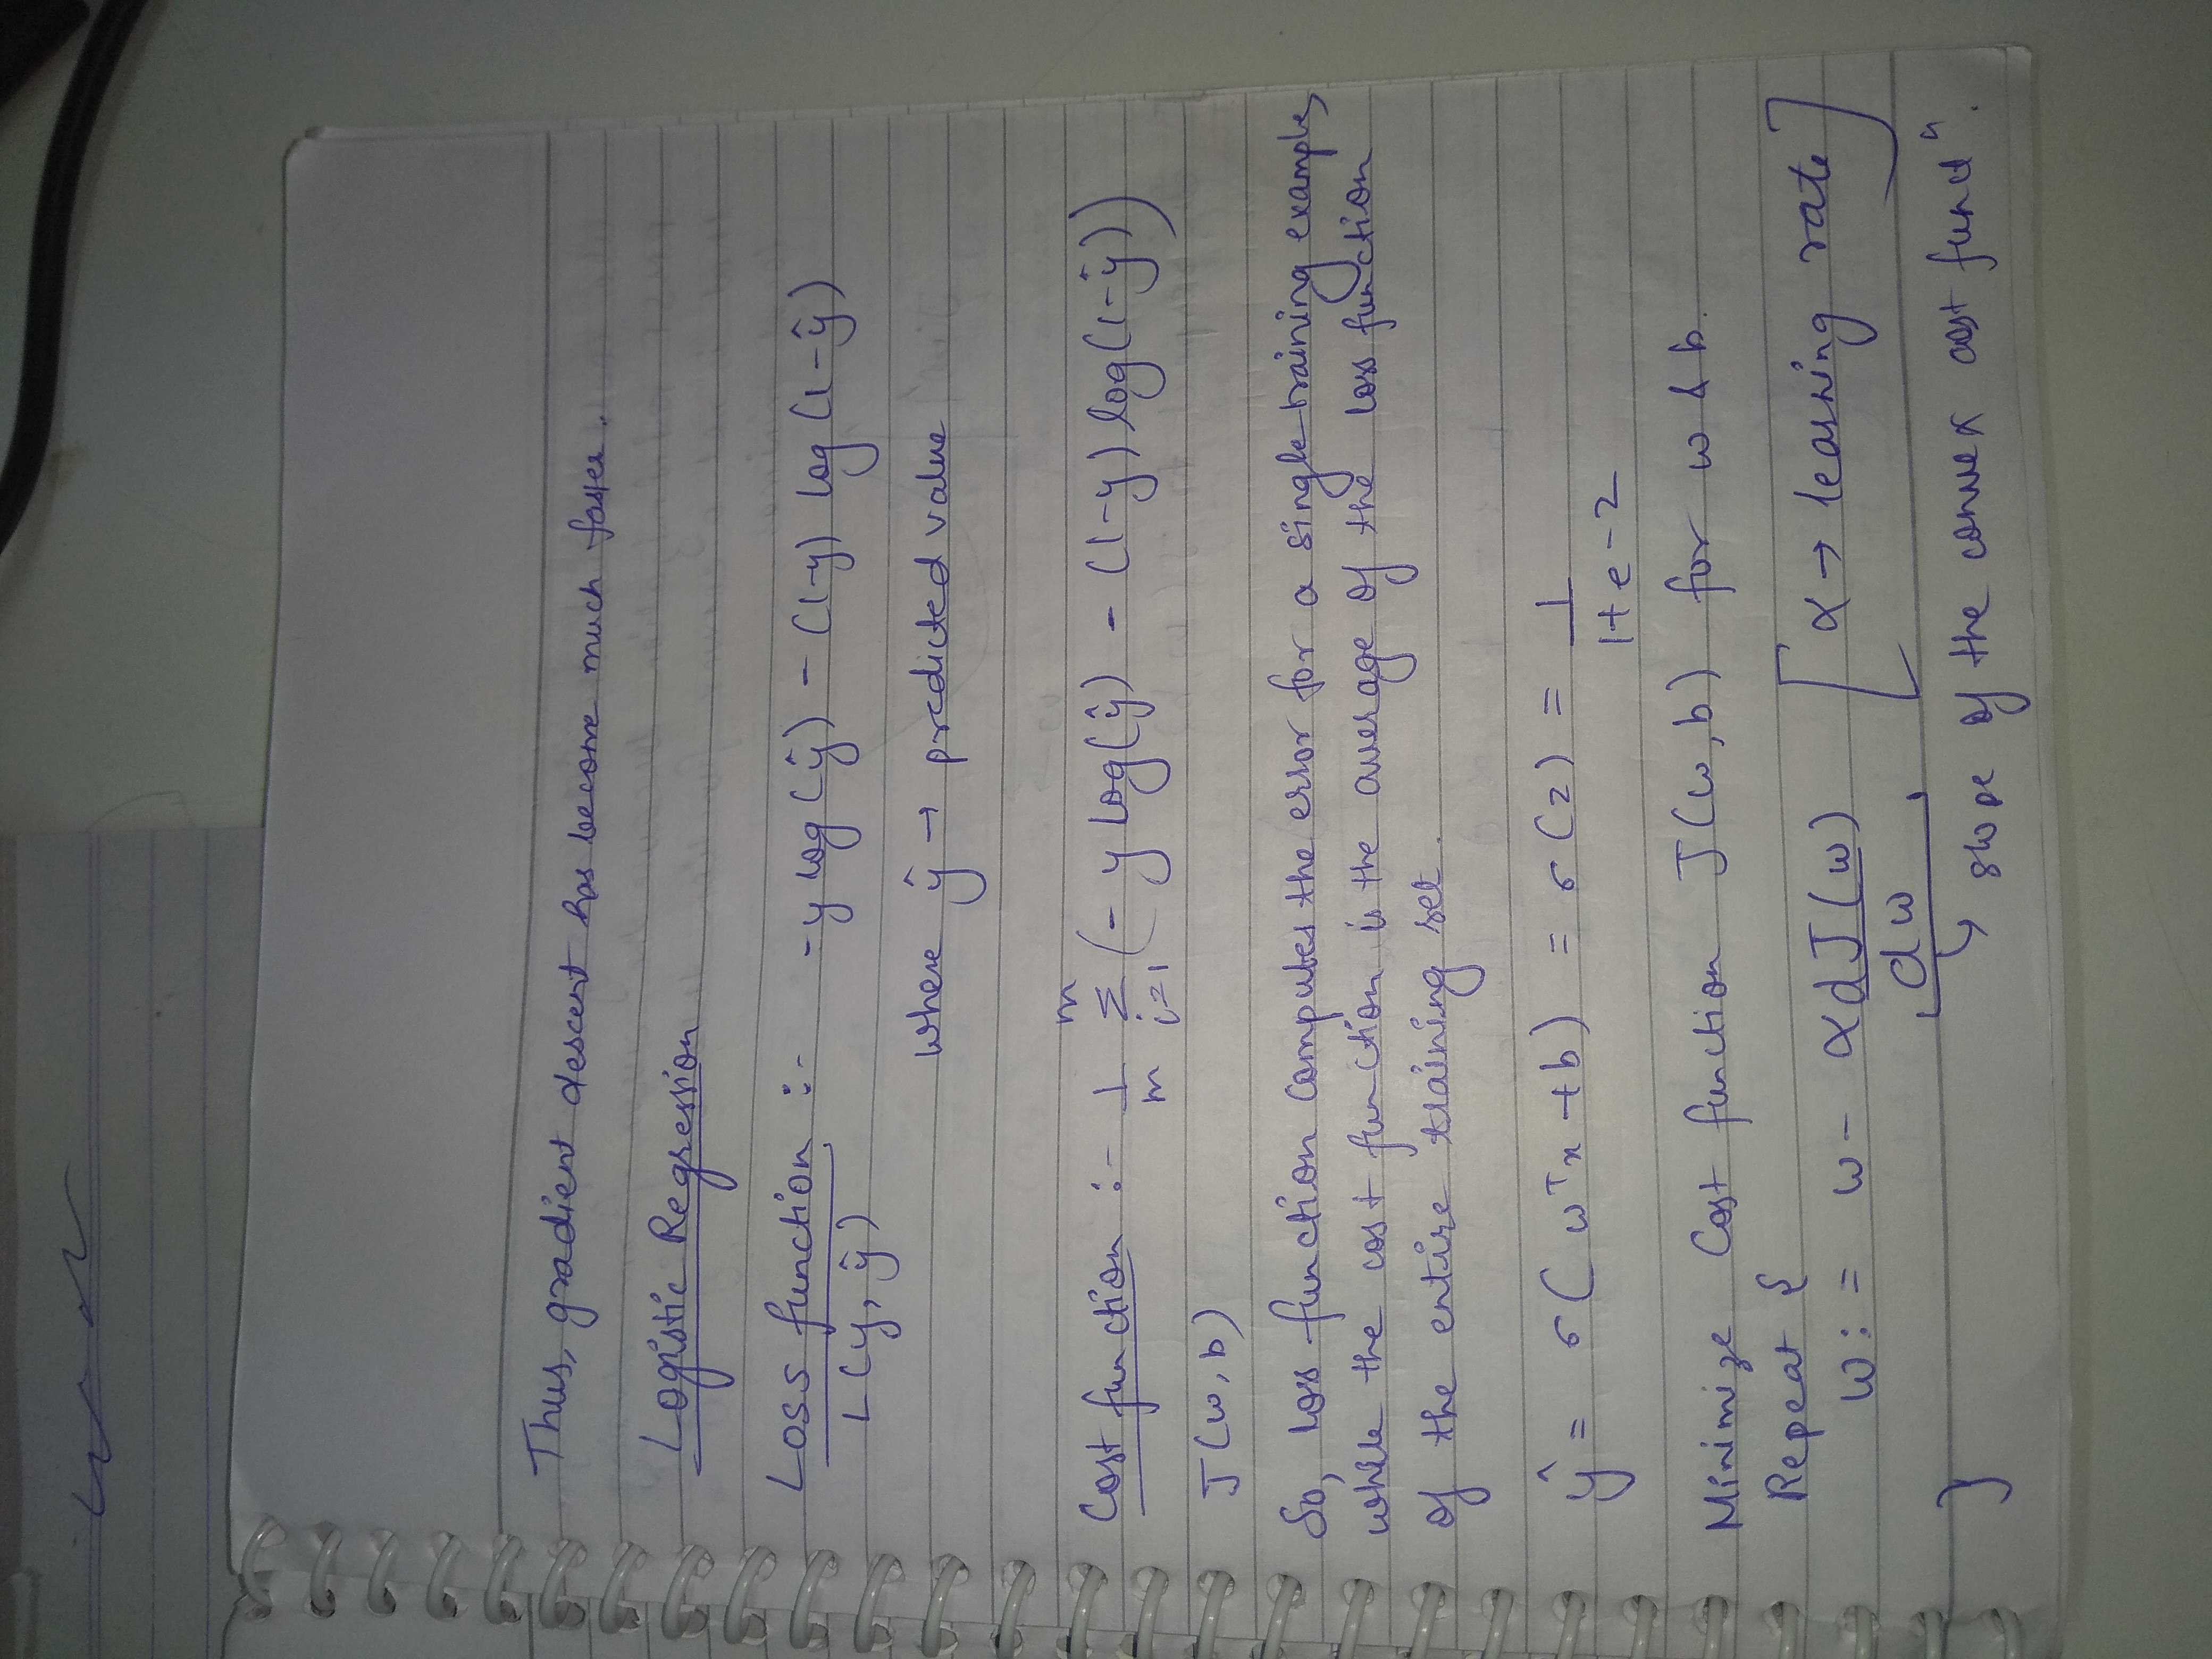 Thus, gradient descent has become much faster.
Logistic Regression
Loss function :- -y log(ŷ) - (1-y) log(1-ŷ)
L(y, ŷ)
where ŷ → predicted value
Cost function :- 1/m Σ_{i=1}^{m} (- y log(ŷ) - (1-y) log(1-ŷ))
J(w, b)
So, loss function computes the error for a single training example,
while the cost function is the average of the loss function
of the entire training set.
ŷ = σ(wᵀx + b) = σ(z) = 1/(1+e-z)
Minimize Cost function J(w, b) for w & b.
Repeat {
w := w - α dJ(w)/dw [α → learning rate]
slope of the convex cost functⁿ.
}